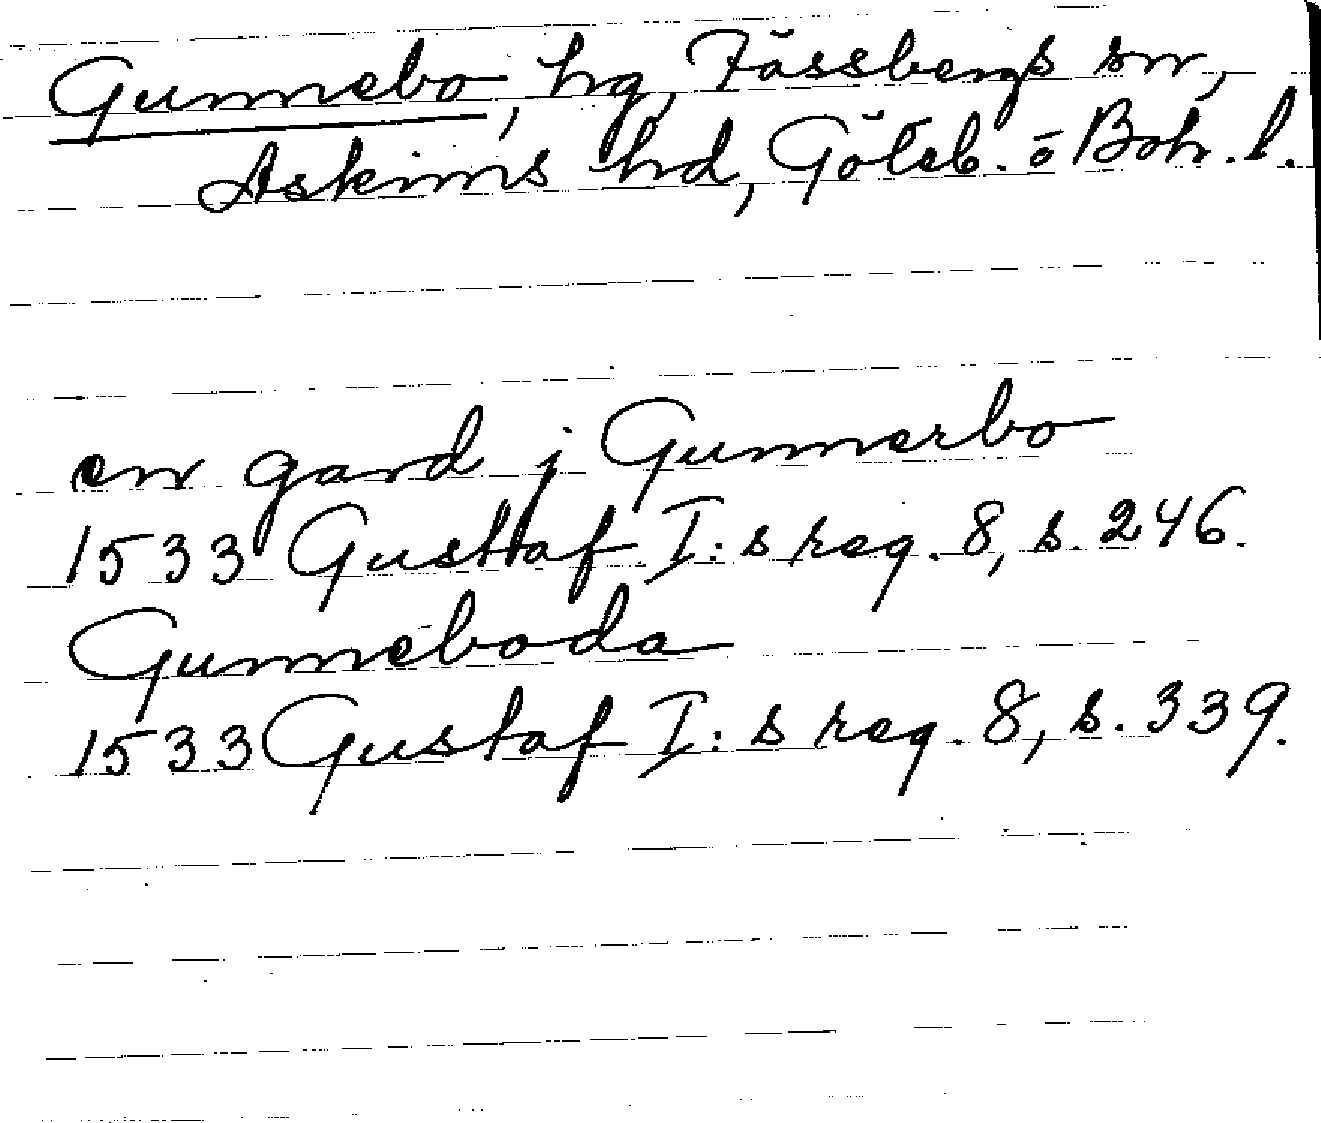 Gunnebo, hg, Fässbergs sn,
Askims hd, Göteb. o Boh. l.
en gard j Gunnerbo
1533 Gustaf I:s reg. 8, s. 246.
Gunneboda
1533 Gustaf I:s reg. 8, s. 339.